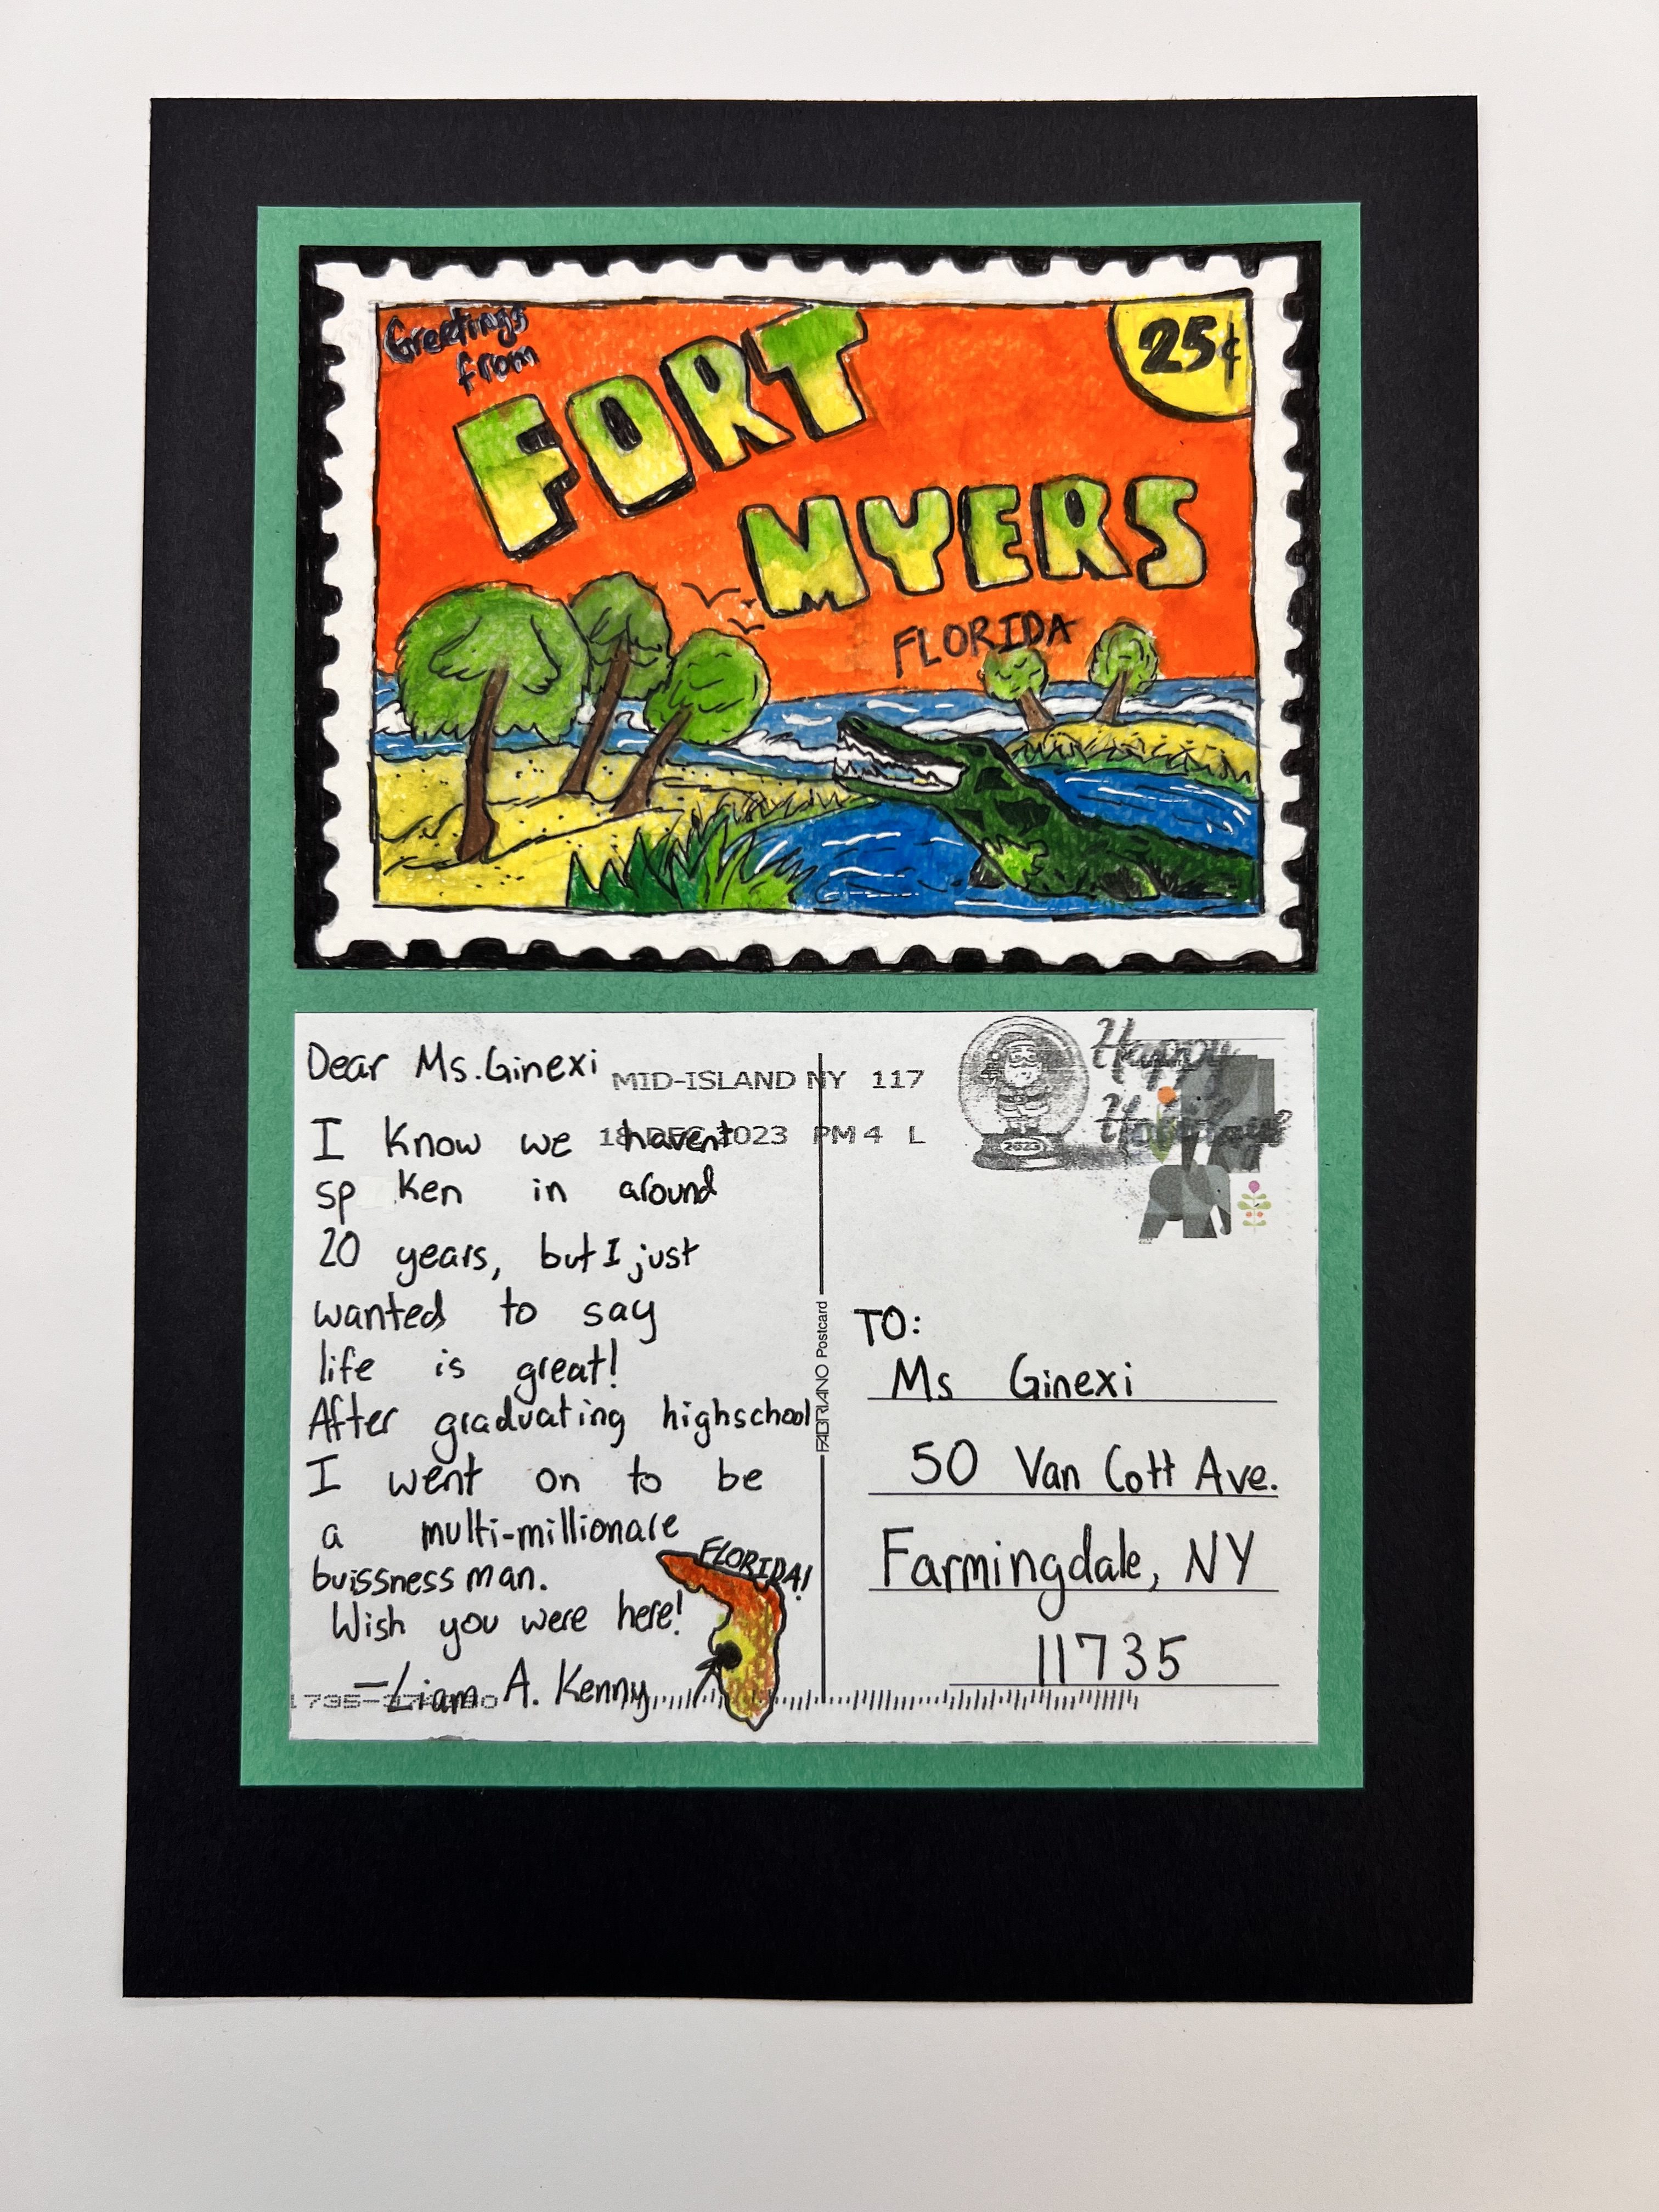 Greetings
from
FORT
MYERS
FLORIDA
25¢
Dear Ms. Ginexi
MID-ISLAND NY 117
18 DEC 2023 PM 4 L
I know we havent
sp ken in around
20 years, but I just
wanted to say
life is great!
After graduating highschool
I went on to be
a multi-millionare
buissness man.
Wish you were here!
—Liam A. Kenny
FLORIDA!
FABRIANO Postcard
Happy
Holidays
2023
TO:
Ms Ginexi
50 Van Cott Ave.
Farmingdale, NY
11735